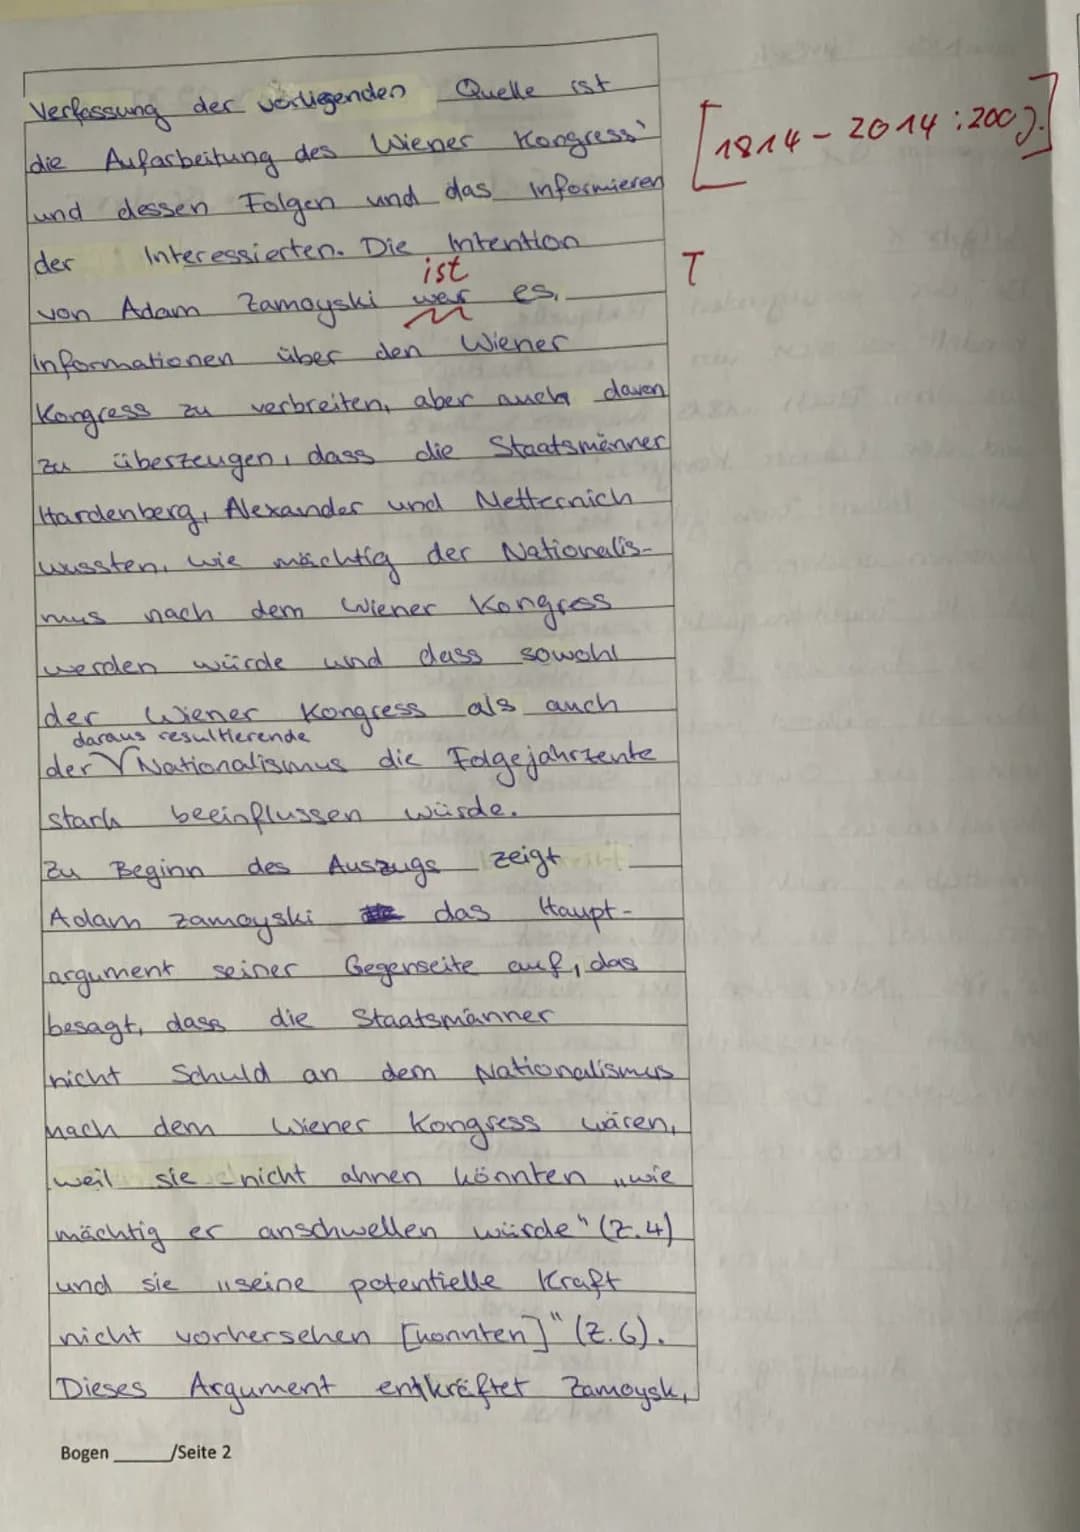 Verfassung der vorliegenden Quelle ist
die Aufarbeitung des Wiener Kongress'
[1814 - 2014 : 200 J.]
und dessen Folgen und das Informieren
der Interessierten. Die Intention
ist
T
von Adam Zamoyski war es,
Informationen über den Wiener
Kongress zu verbreiten, aber auch davon
zu überzeugen, dass die Staatsmänner
Hardenberg, Alexander und Metternich
wussten, wie mächtig der Nationalis-
mus nach dem Wiener Kongress
werden würde und dass sowohl
der Wiener Kongress als auch
daraus resultierende
der Nationalismus die Folgejahrzente
stark beeinflussen würde.
Zu Beginn des Auszugs zeigt
Adam Zamoyski das Haupt-
argument seiner Gegenseite auf, das
besagt, dass die Staatsmänner
nicht Schuld an dem Nationalismus
nach dem Wiener Kongress wären,
weil sie nicht ahnen könnten „wie
mächtig er anschwellen würde" (Z.4)
und sie „seine potentielle Kraft
nicht vorhersehen [konnten]" (Z.6).
Dieses Argument entkräftet Zamoysk,
Bogen ______/Seite 2